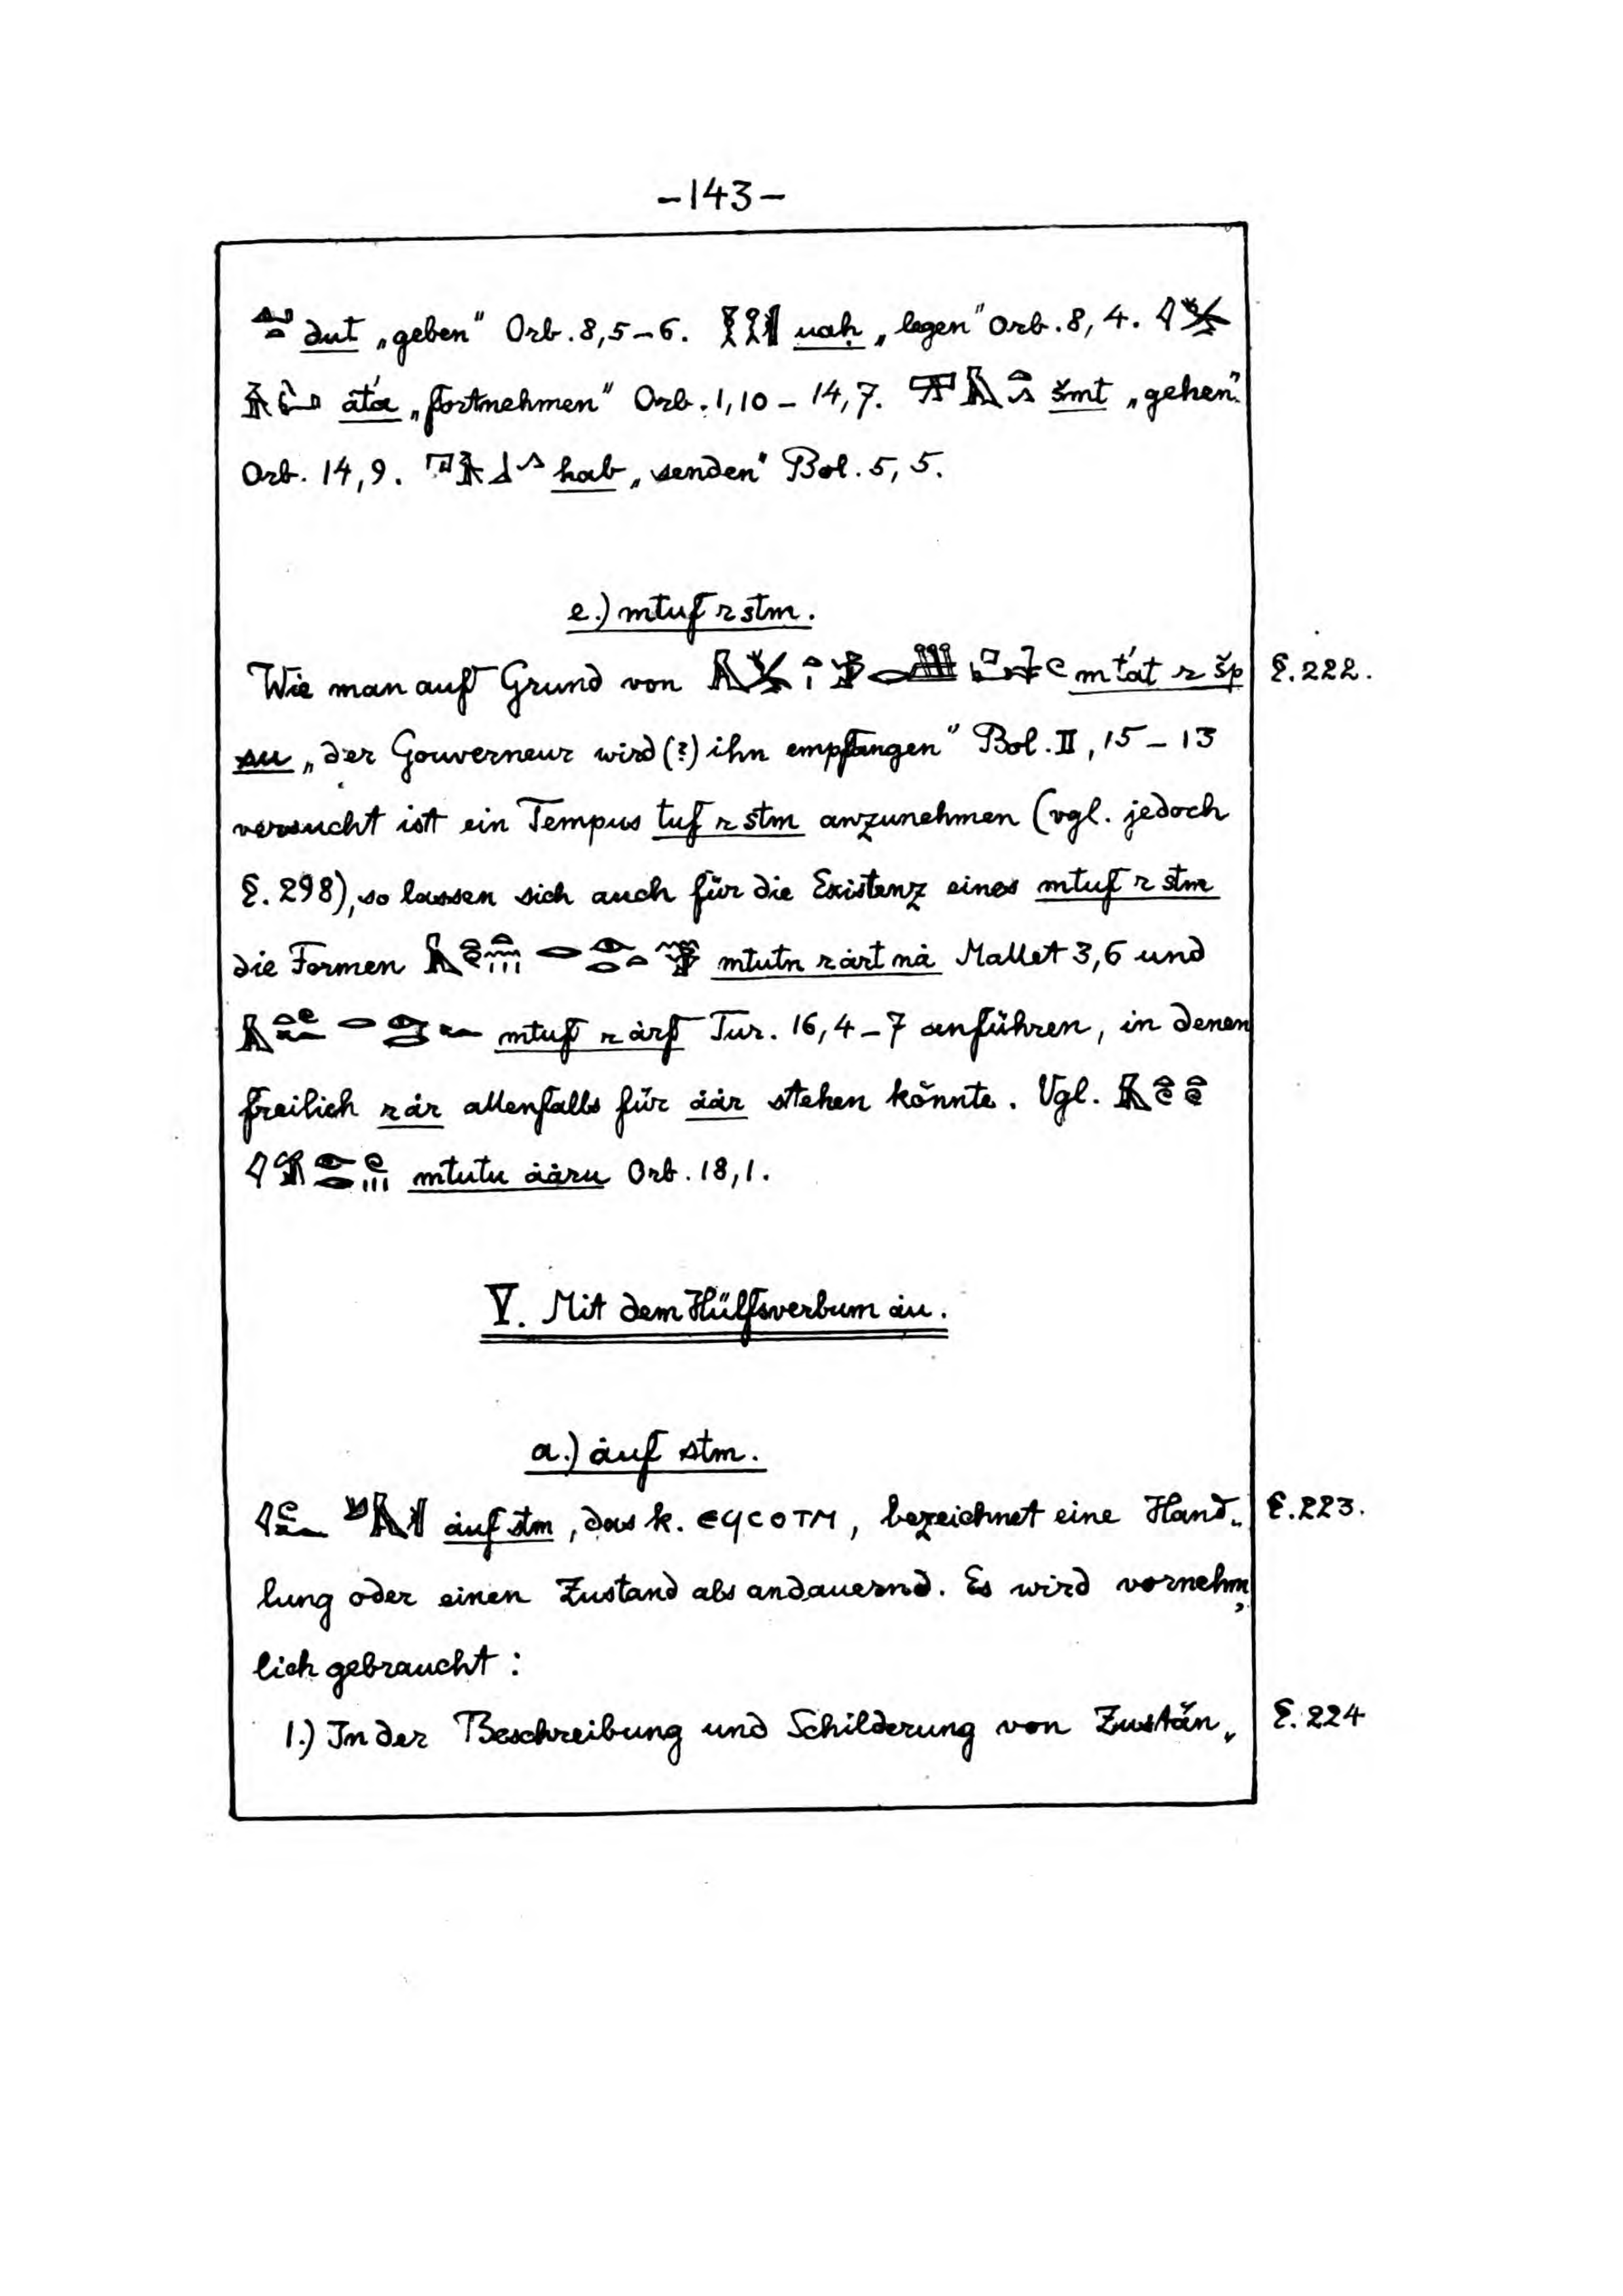 -143-
dut „geben" Orb. 8,5-6. uaḥ „legen" Orb. 8,4.
„fortnehmen" Orb. 1,10-14,7. šmt „gehen".
Orb. 14,9. hab „senden" Bol. 5,5.
e.) mtuf r stm.
Wie man auf Grund von mťȧt r šp §.222.
su „der Gouverneur wird (?) ihn empfangen" Bol. II, 15-13
versucht ist ein Tempus tuf r stm anzunehmen (vgl. jedoch
§.298), so lassen sich auch für die Existenz eines mtuf r stm
die Formen mtutn r ȧrt nȧ Mallet 3,6 und
mtuf r ȧrf Tur. 16,4-7 anführen, in denen
freilich r ȧr allenfalls für ȧȧr stehen könnte. Vgl.
mtutu ȧȧru Orb. 18,1.
V. Mit dem Hülfsverbum ȧu.
a.) ȧuf stm.
ȧuf stm, das k. ⲉϥⲥⲟⲧⲙ, bezeichnet eine Hand„ §.223.
lung oder einen Zustand als andauernd. Es wird vornehm„
lich gebraucht:
1.) In der Beschreibung und Schilderung von Zustän„ §.224